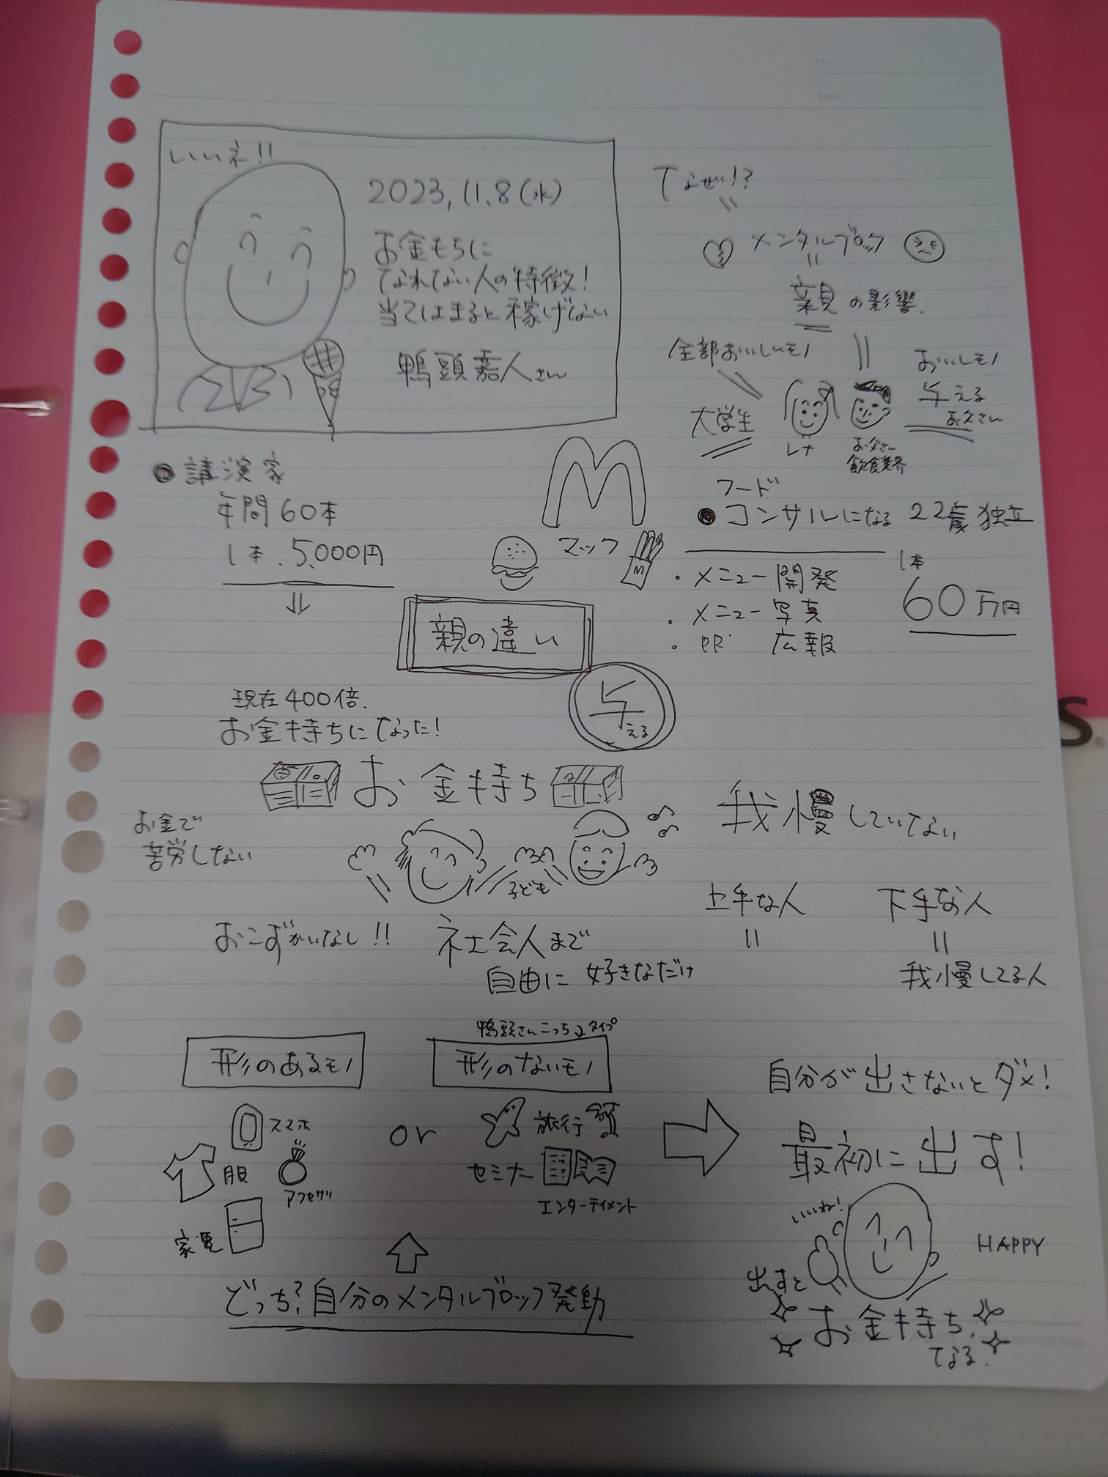 いいネ!!
2023,11.8(水)
お金もちに
なれない人の特徴!
当てはまると稼げない
鴨頭嘉人さん
なぜ!?
メンタルブロック
親の影響.
全部おいしいモノ
大学生
レナ
お父さん
飲食業界
おいしモノ
与える
お父さん
●講演家
年間60本
1本.5,000円
M
マック
M
フード
●コンサルになる 22歳独立
・メニュー開発
・メニュー写真
・PR 広報
1本
60万円
親の違い
与える
現在400倍.
お金持ちになった!
お金持ち
お金で
苦労しない
子ども
おこずかいなし!!
社会人まで
自由に 好きなだけ
我慢していない
上手な人
下手な人
我慢してる人
形のあるモノ
スマホ
服
アクセサリ
家電
or
鴨頭さんこっちタイプ
形のないモノ
旅行
セミナー
エンターテイメント
どっち?自分のメンタルブロック発動
自分が出さないとダメ!
最初に出す!
いいね!
HAPPY
出すと
お金持ち
なる.
S®